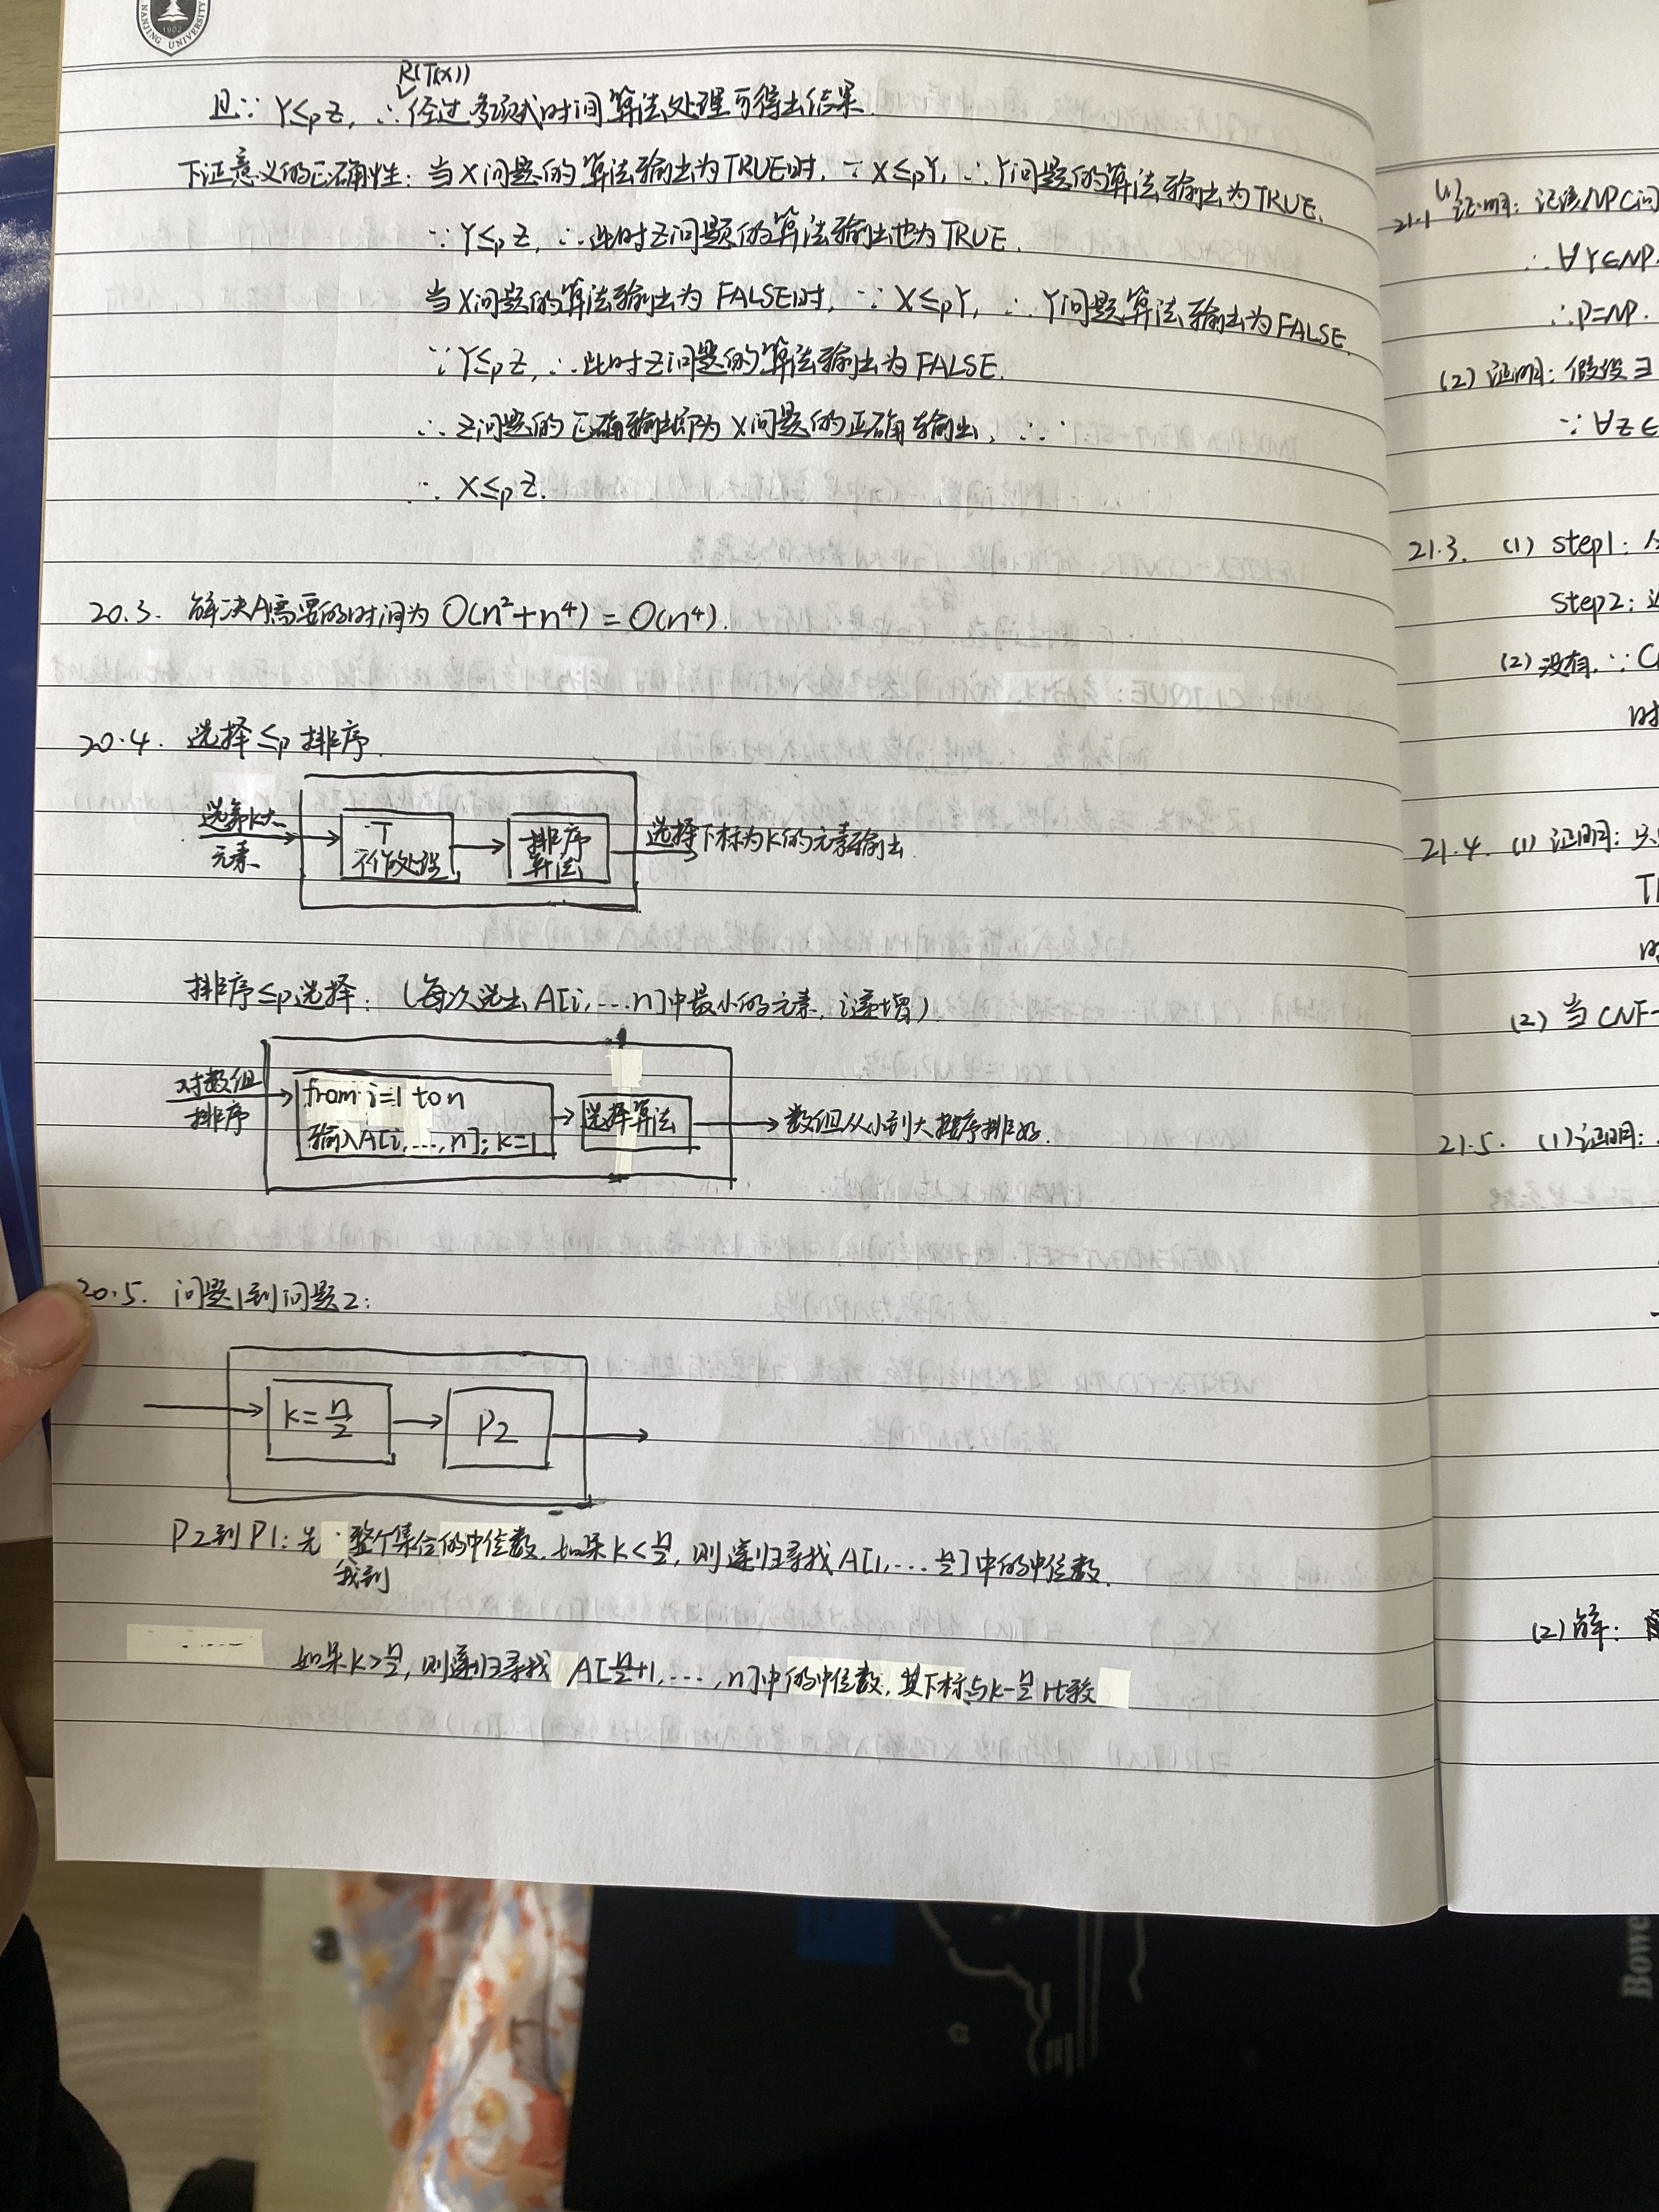 NANJING UNIVERSITY
1902
R(T(x))
且∵ Y≤pZ, ∴经过多项式时间算法处理可得出结果.
下证意义的正确性: 当X问题的算法输出为TRUE时, ∵X≤pY, ∴Y问题的算法输出为TRUE.
∵Y≤pZ, ∴此时Z问题的算法输出也为TRUE.
当X问题的算法输出为FALSE时, ∵X≤pY, ∴Y问题算法输出为FALSE.
∵Y≤pZ, ∴此时Z问题的算法输出为FALSE.
∴Z问题的正确输出即为X问题的正确输出, ∴
∴X≤pZ.
20.3. 解决A需要的时间为 O(n²+n⁴)=O(n⁴).
20.4. 选择≤p排序.
选第k大
元素
T
不作处理
排序
算法
选择下标为k的元素输出.
排序≤p选择: (每次选出A[i,...n]中最小的元素, i递增)
对数组
排序
from i=1 to n
输入A[i,...,n]; k=1
选择算法
数组从小到大排序排好.
20.5. 问题1到问题2:
k=n/2
P2
P2到P1: 先找到整个集合的中位数. 如果k<n/2, 则递归寻找A[1,...n/2]中的中位数.
如果k>n/2, 则递归寻找A[n/2+1,...,n]中的中位数, 其下标与k-n/2比较
21.1 (1) 证明: 记该NPC问
∴∀Y∈NP.
∴P=NP.
(2) 证明: 假设∃
∵∀Z∈
21.3. (1) step1:
step2:
(2) 没有. ∵C
时
21.4. (1) 证明:
(2) 当CNF-
21.5. (1) 证明:
(2) 解:
Bowe